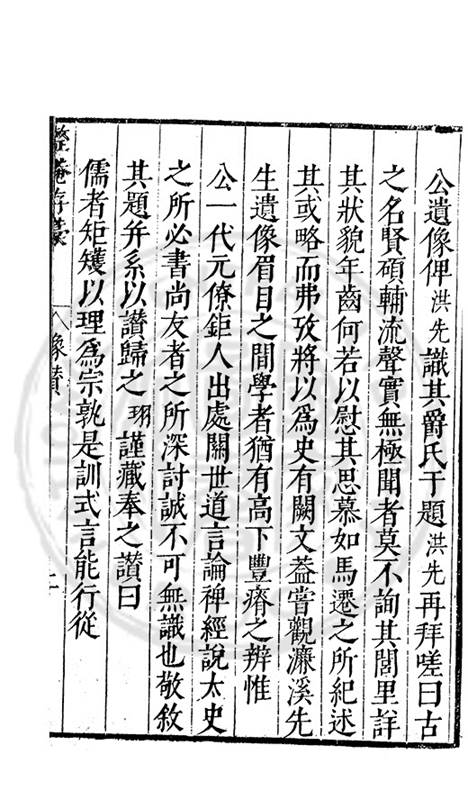 公遺像俾洪先識其爵氏于題洪先再拜嗟曰古
之名賢碩輔流聲實無極聞者莫不詢其閭里詳
其狀貌年齒何若以慰其思慕如馬遷之所紀述
其或略而弗攷將以爲史有闕文葢嘗觀濂溪先
生遺像眉目之間學者猶有高下豐瘠之辨惟
公一代元僚鉅人出處關世道言論裨經說太史
之所必書尚友者之所深討誠不可無識也敬敘
其題并系以讃歸之珝謹藏奉之讃曰
儒者矩矱以理爲宗孰是訓式言能行從
整菴存稾
像讃
二